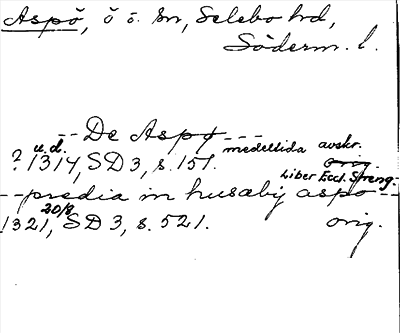 Aspö, ö o. sn, Selebo hd,
Söderm. l.
-- De Aspø ---
medeltida avskr.
u.d.
? 1314, SD 3, s. 151. orig.
Liber Eccl. Streng.
-- predia in husæby aspo --
20/8
1321, SD 3, s. 521. orig.